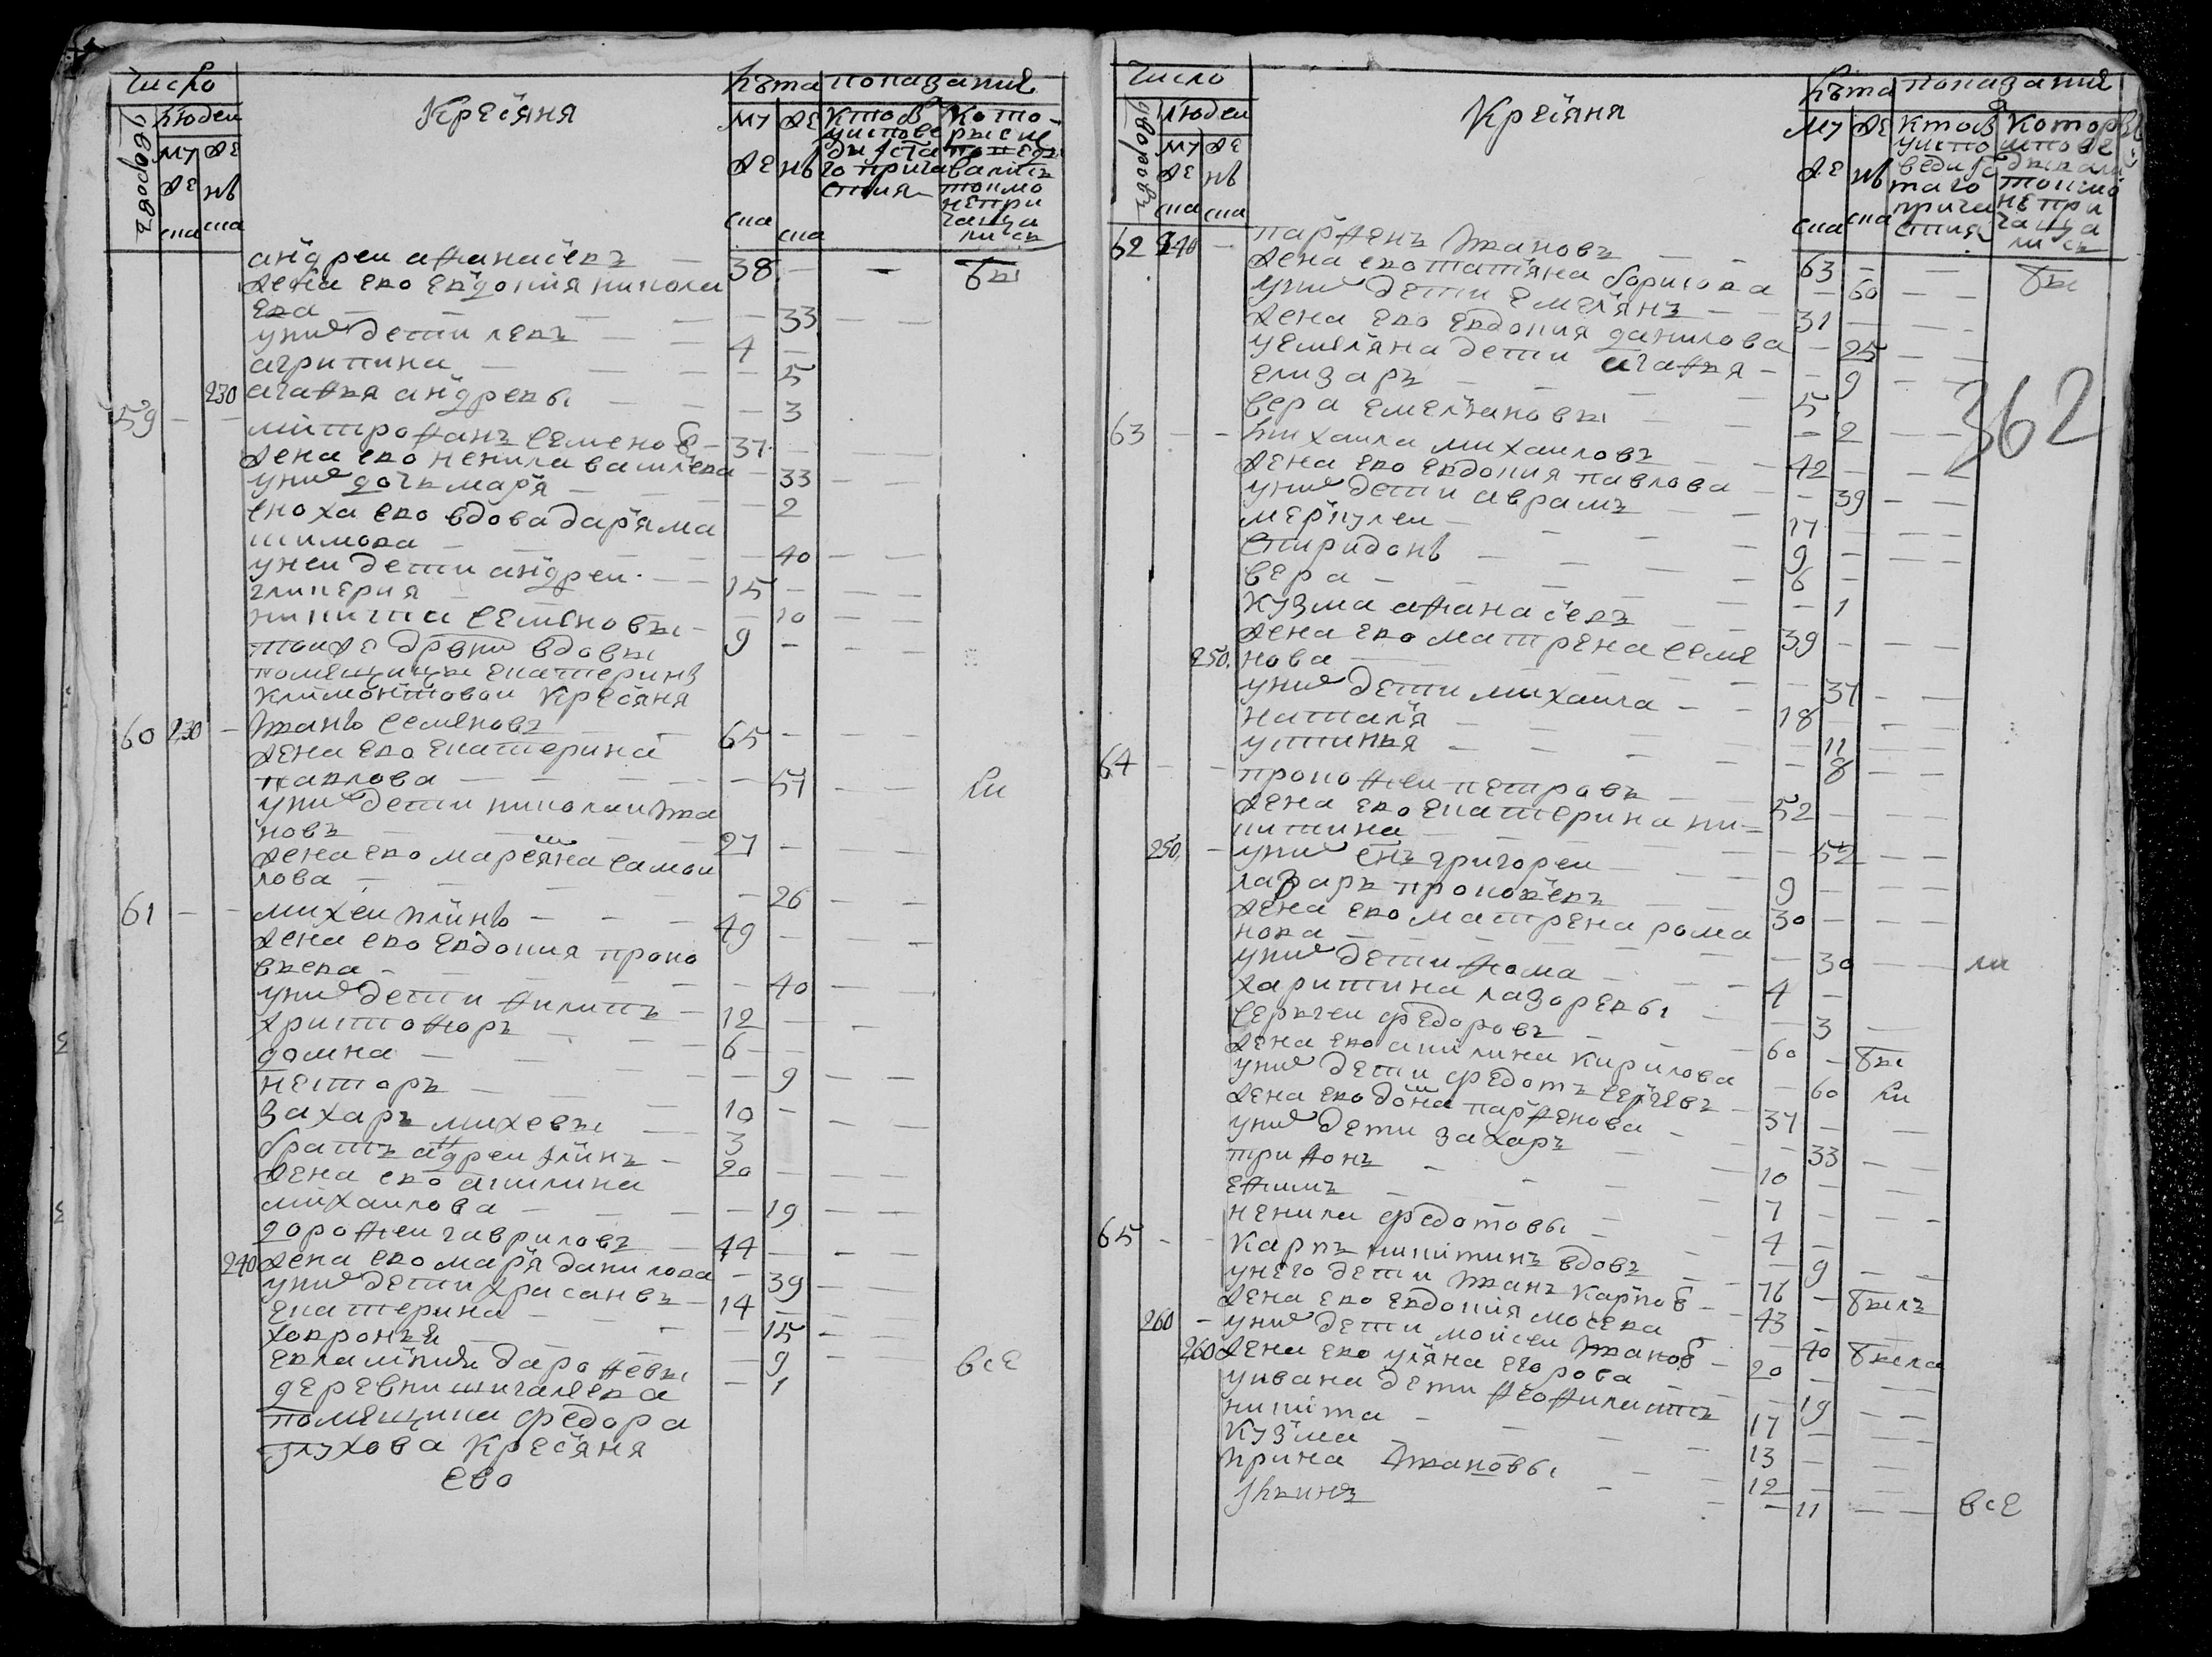 Число
Крестяня
Лѣта
показание
дворовъ
людеи
му же
ска
андреи афанасевъ 38 бы
жена ево евдокия никола
ева 33
уних дети левъ 4
агрипина 5
230 агафья андреевы 3
59 митрофанъ семеновъ 37
жена ево ненила васильева 33
уних дочь маря 2
сноха ево вдова даря ма
ѯимова 40
унеи дети андреи 15
гликерия 10
никита семеновы 9
тоиже дрвни вдовы
помещицы екатерины
климонтовои крестяня
60 230 иванъ семеновъ 65
жена ево екатерина
павлова 57 ли
уних дети николаи ива
новъ 27
жена ево маремяна самои
лова 26
61 михеи илинъ 49
жена ево евдокия проко
вьева 40
уних дети филипъ 12
христофоръ 6
домна 9
несторъ 10
захаръ михевы 3
братъ адреи илинъ 20
жена ево акилина
михаилова 19
дорофеи гавриловъ 44
240 жена ево маря данилова 39
уних дети хрисанвъ 14
екатерина 15
ховронья 9
евлампия дорофевы 1 все
деревни шигалева
помещика федора
глухова крестяня
ево
Число
Крестяня
Лѣта
показание
дворовъ
людеи
му же
ска
62 240 парфенъ ивановъ 63 бы
жена ево татяна борисова 60
уних дети емелянъ 31
жена ево евдокия данилова 25
уемеляна дети агафья 9
елизаръ 5
вера емеляновы 2
362
63 михаила михаиловъ 42
жена ево евдокия павлова 39
уних дети аврамъ 17
меркулеи 9
спиридонъ 6
вера 1
кузма афанасевъ 39
жена ево матрена семе
250 нова 37
уних дети михаила 18
наталя 11
устинья 8
64 прокофеи петровъ 52
жена ево екатерина ни
китина 52
250 уних снъ григореи 9
лазарь прокофевъ 30
жена ево матрена рома
нова 30 ли
уних дети фома 4
харитина лазоревы 3
сергеи федоровъ 60 бы
жена ево акилина кирилова 60 ли
уних дети федотъ сергеевъ 37
жена ево домна парфенова 33
уних дети захаръ 10
трифонъ 7
ефимъ 4
ненила федотовы 9
65 карпъ никитинъ вдовъ 76 былъ
унего дети иванъ карповъ 43
жена ево евдокия мосева 40 была
260 уних дети моисеи ивановъ 20
260 жена ево уляна егорова 19
уивана дети феофилактъ 17
никита 13
кузма 12
ирина ивановы 11 все